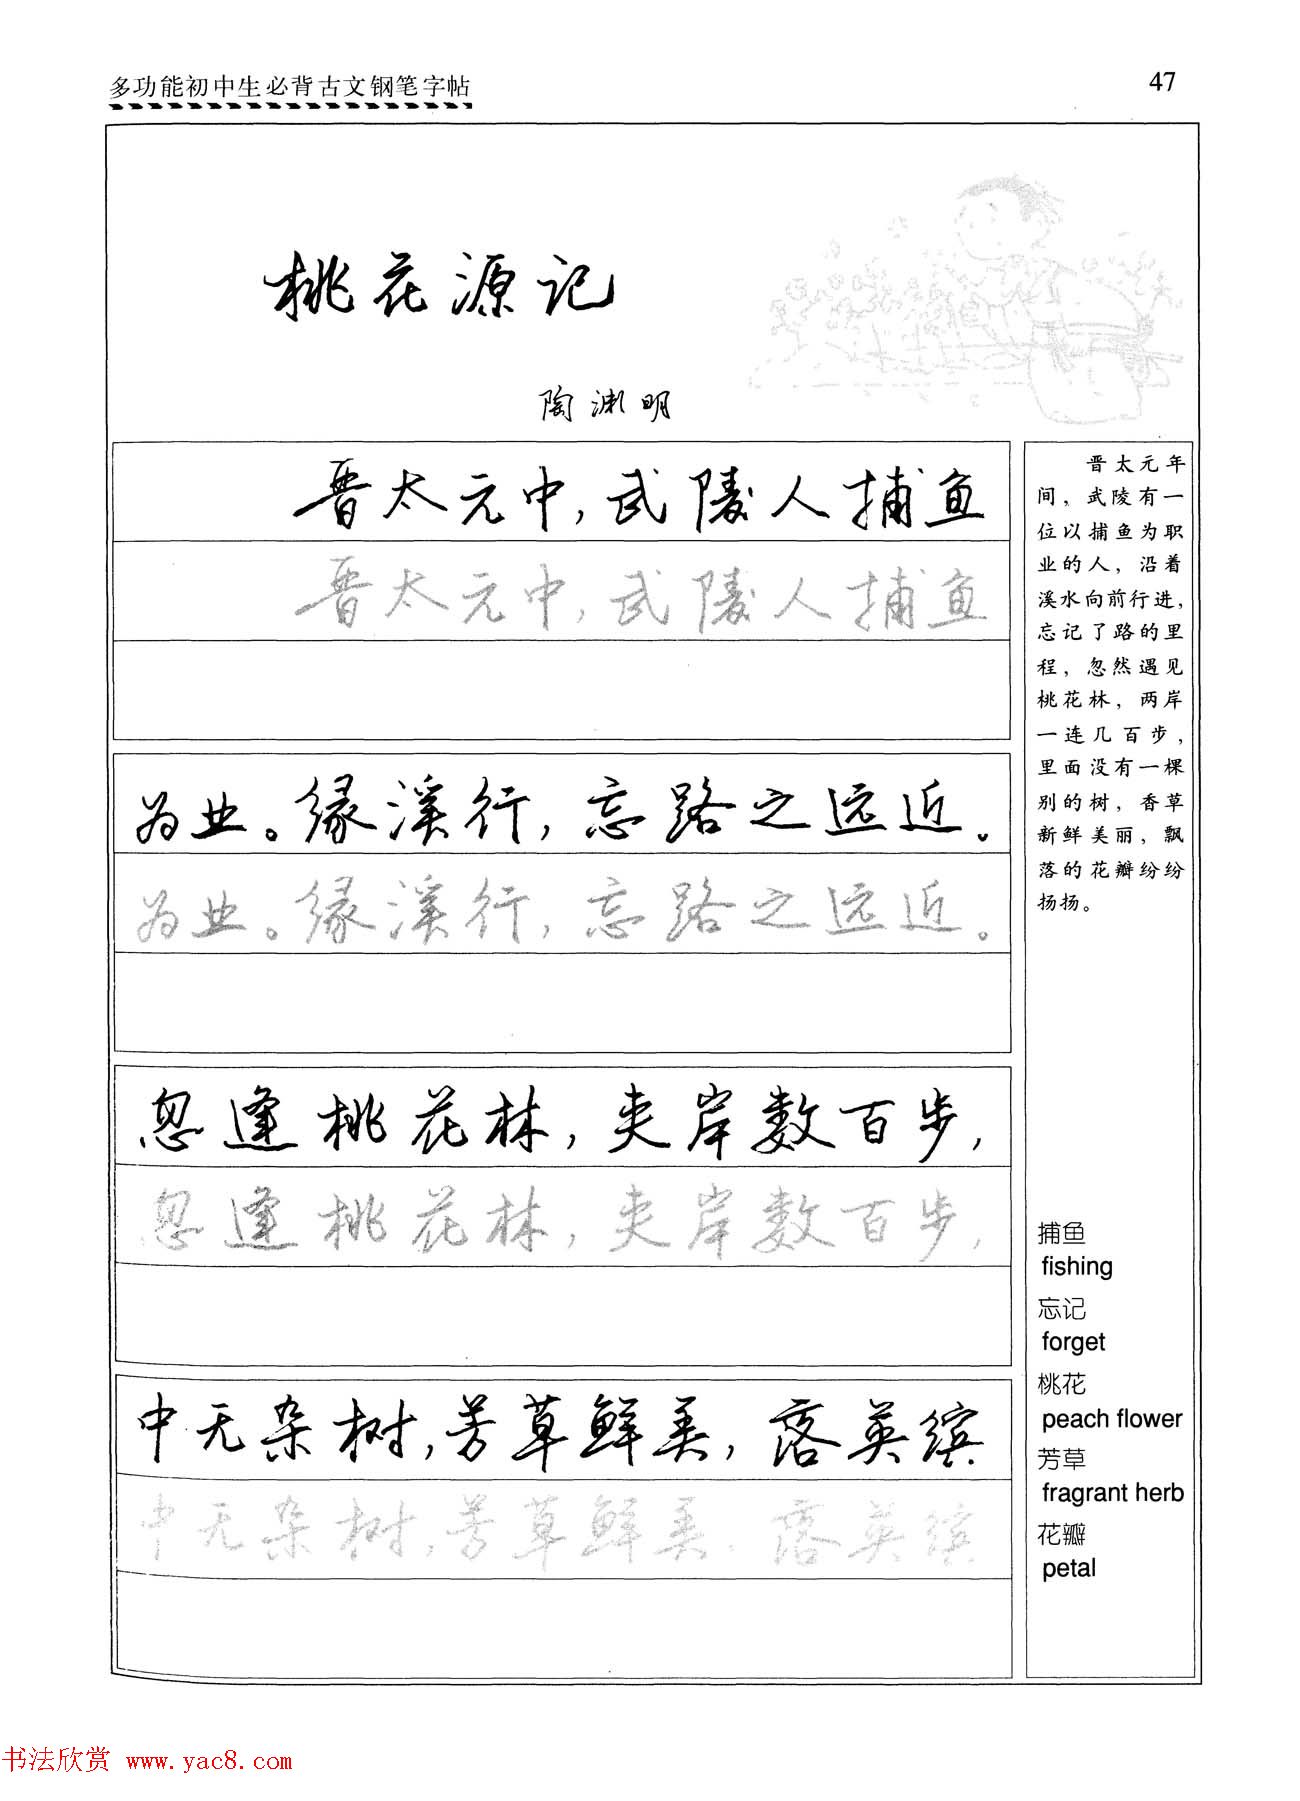 多功能初中生必背古文钢笔字帖
47
桃花源记
陶渊明
晋太元中，武陵人捕鱼
晋太元中，武陵人捕鱼
为业。缘溪行，忘路之远近。
为业。缘溪行，忘路之远近。
忽逢桃花林，夹岸数百步，
忽逢桃花林，夹岸数百步，
中无杂树，芳草鲜美，落英缤
中无杂树，芳草鲜美，落英缤
晋太元年
间，武陵有一
位以捕鱼为职
业的人，沿着
溪水向前行进，
忘记了路的里
程，忽然遇见
桃花林，两岸
一连几百步，
里面没有一棵
别的树，香草
新鲜美丽，飘
落的花瓣纷纷
扬扬。
捕鱼
fishing
忘记
forget
桃花
peach flower
芳草
fragrant herb
花瓣
petal
书法欣赏 www.yac8.com